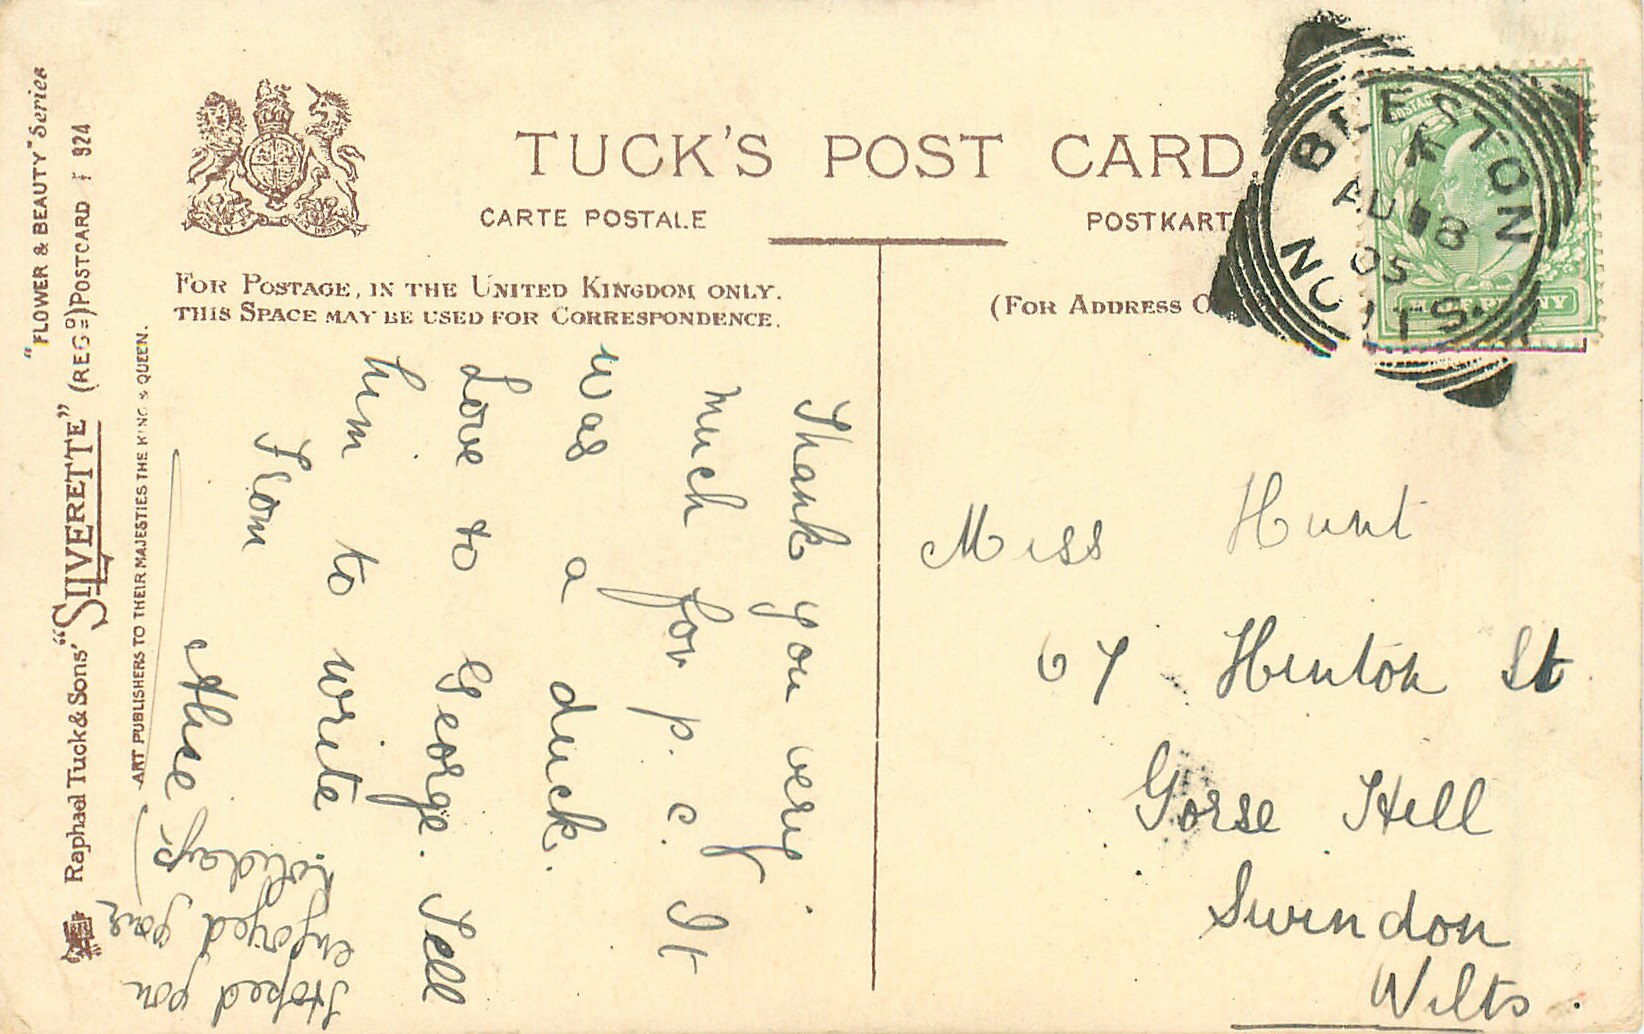 TUCK'S POST CARD.
CARTE POSTALE
POSTKARTE
FOR POSTAGE, IN THE UNITED KINGDOM ONLY.
THIS SPACE MAY BE USED FOR CORRESPONDENCE.
(FOR ADDRESS O
BEESTON
AU 18
05
NOTTS.
HALFPENNY
Thank you very
much for p. c. It
was a duck.
Love to George. Tell
him to write
From
Alice
Hoped you
enjoyed your
holidays
Miss Hunt
67 Hinton St
Gorse Hill
Swindon
Wilts.
"FLOWER & BEAUTY" Series
Raphael Tuck & Sons' "SILVERETTE" (REGD) POSTCARD 924
ART PUBLISHERS TO THEIR MAJESTIES THE KING & QUEEN.